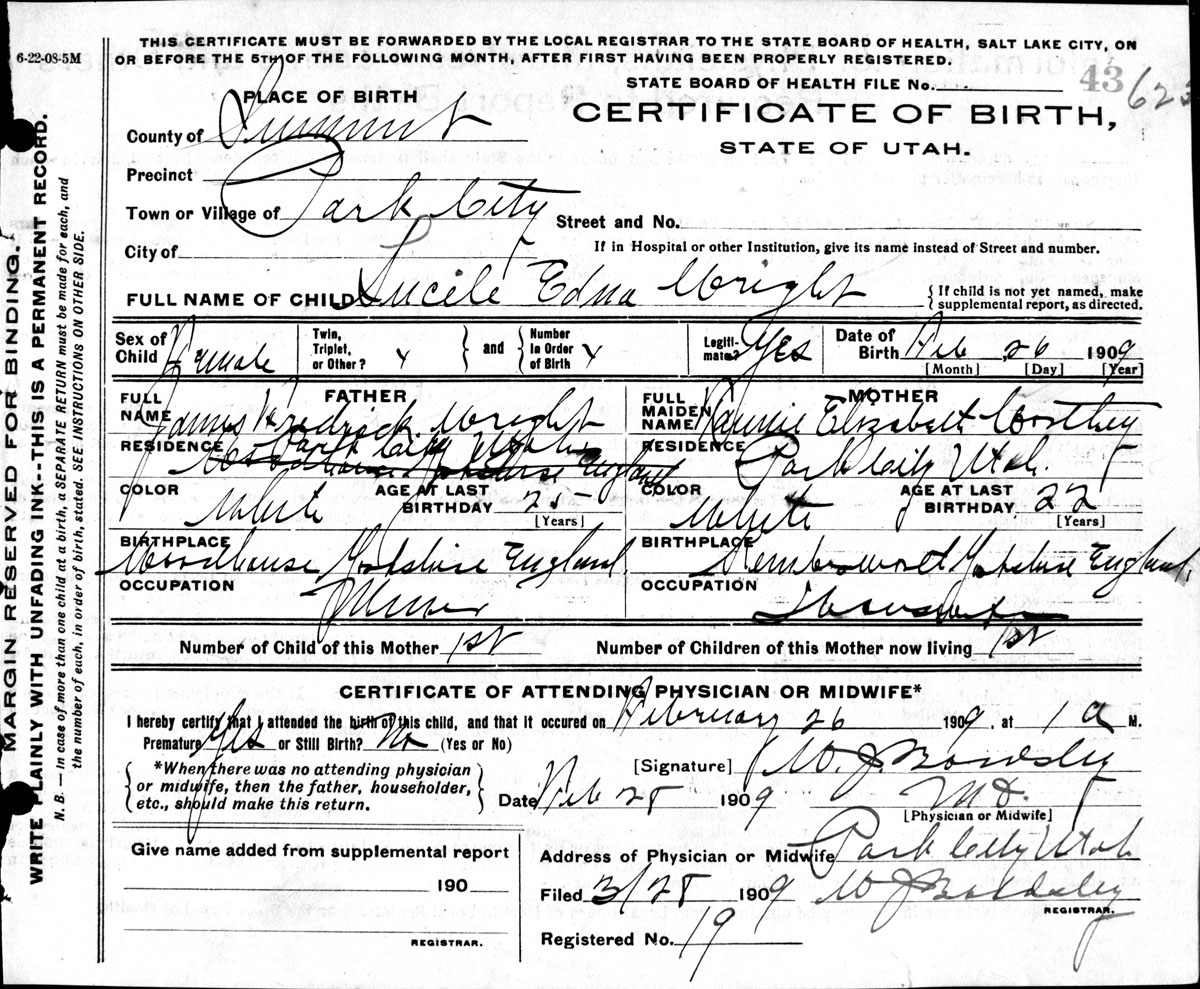 6-22-08-5M
THIS CERTIFICATE MUST BE FORWARDED BY THE LOCAL REGISTRAR TO THE STATE BOARD OF HEALTH, SALT LAKE CITY, ON
OR BEFORE THE 5TH OF THE FOLLOWING MONTH, AFTER FIRST HAVING BEEN PROPERLY REGISTERED.
STATE BOARD OF HEALTH FILE No. 43 623
PLACE OF BIRTH
CERTIFICATE OF BIRTH,
STATE OF UTAH.
County of Summit
Precinct
Town or Village of Park City
Street and No.
If in Hospital or other Institution, give its name instead of Street and number.
City of
FULL NAME OF CHILD Lucile Edna Wright
{ If child is not yet named, make
supplemental report, as directed.
Sex of Child Female
Twin, Triplet, or Other? x
and
Number in Order of Birth x
Legiti-mate? Yes
Date of Birth Feb 26 1909
[Month] [Day] [Year]
FATHER
FULL NAME James Fredrick Wright
RESIDENCE Park City Utah
Woodhouse Yorkshire England
COLOR White
AGE AT LAST BIRTHDAY 25
[Years]
BIRTHPLACE Woodhouse Yorkshire England
OCCUPATION Miner
MOTHER
FULL MAIDEN NAME Elizabeth
RESIDENCE Park City Utah.
COLOR White
AGE AT LAST BIRTHDAY 22
[Years]
BIRTHPLACE Yorkshire England
OCCUPATION Housewife
Number of Child of this Mother 1st
Number of Children of this Mother now living 1st
CERTIFICATE OF ATTENDING PHYSICIAN OR MIDWIFE*
I hereby certify that I attended the birth of this child, and that it occured on February 26 1909. at 1 a M.
Premature Yes or Still Birth? No (Yes or No)
*When there was no attending physician
or midwife, then the father, householder,
etc., should make this return.
[Signature] W. J. Bardsley
Date Feb 28 1909
M D.
[Physician or Midwife]
Give name added from supplemental report
190
REGISTRAR.
Address of Physician or Midwife Park City Utah
Filed 3/28 1909 W J Bardsley
REGISTRAR.
Registered No. 19
MARGIN RESERVED FOR BINDING.
WRITE PLAINLY WITH UNFADING INK--THIS IS A PERMANENT RECORD.
N. B. — In case of more than one child at a birth, a SEPARATE RETURN must be made for each, and
the number of each, in order of birth, stated. SEE INSTRUCTIONS ON OTHER SIDE.